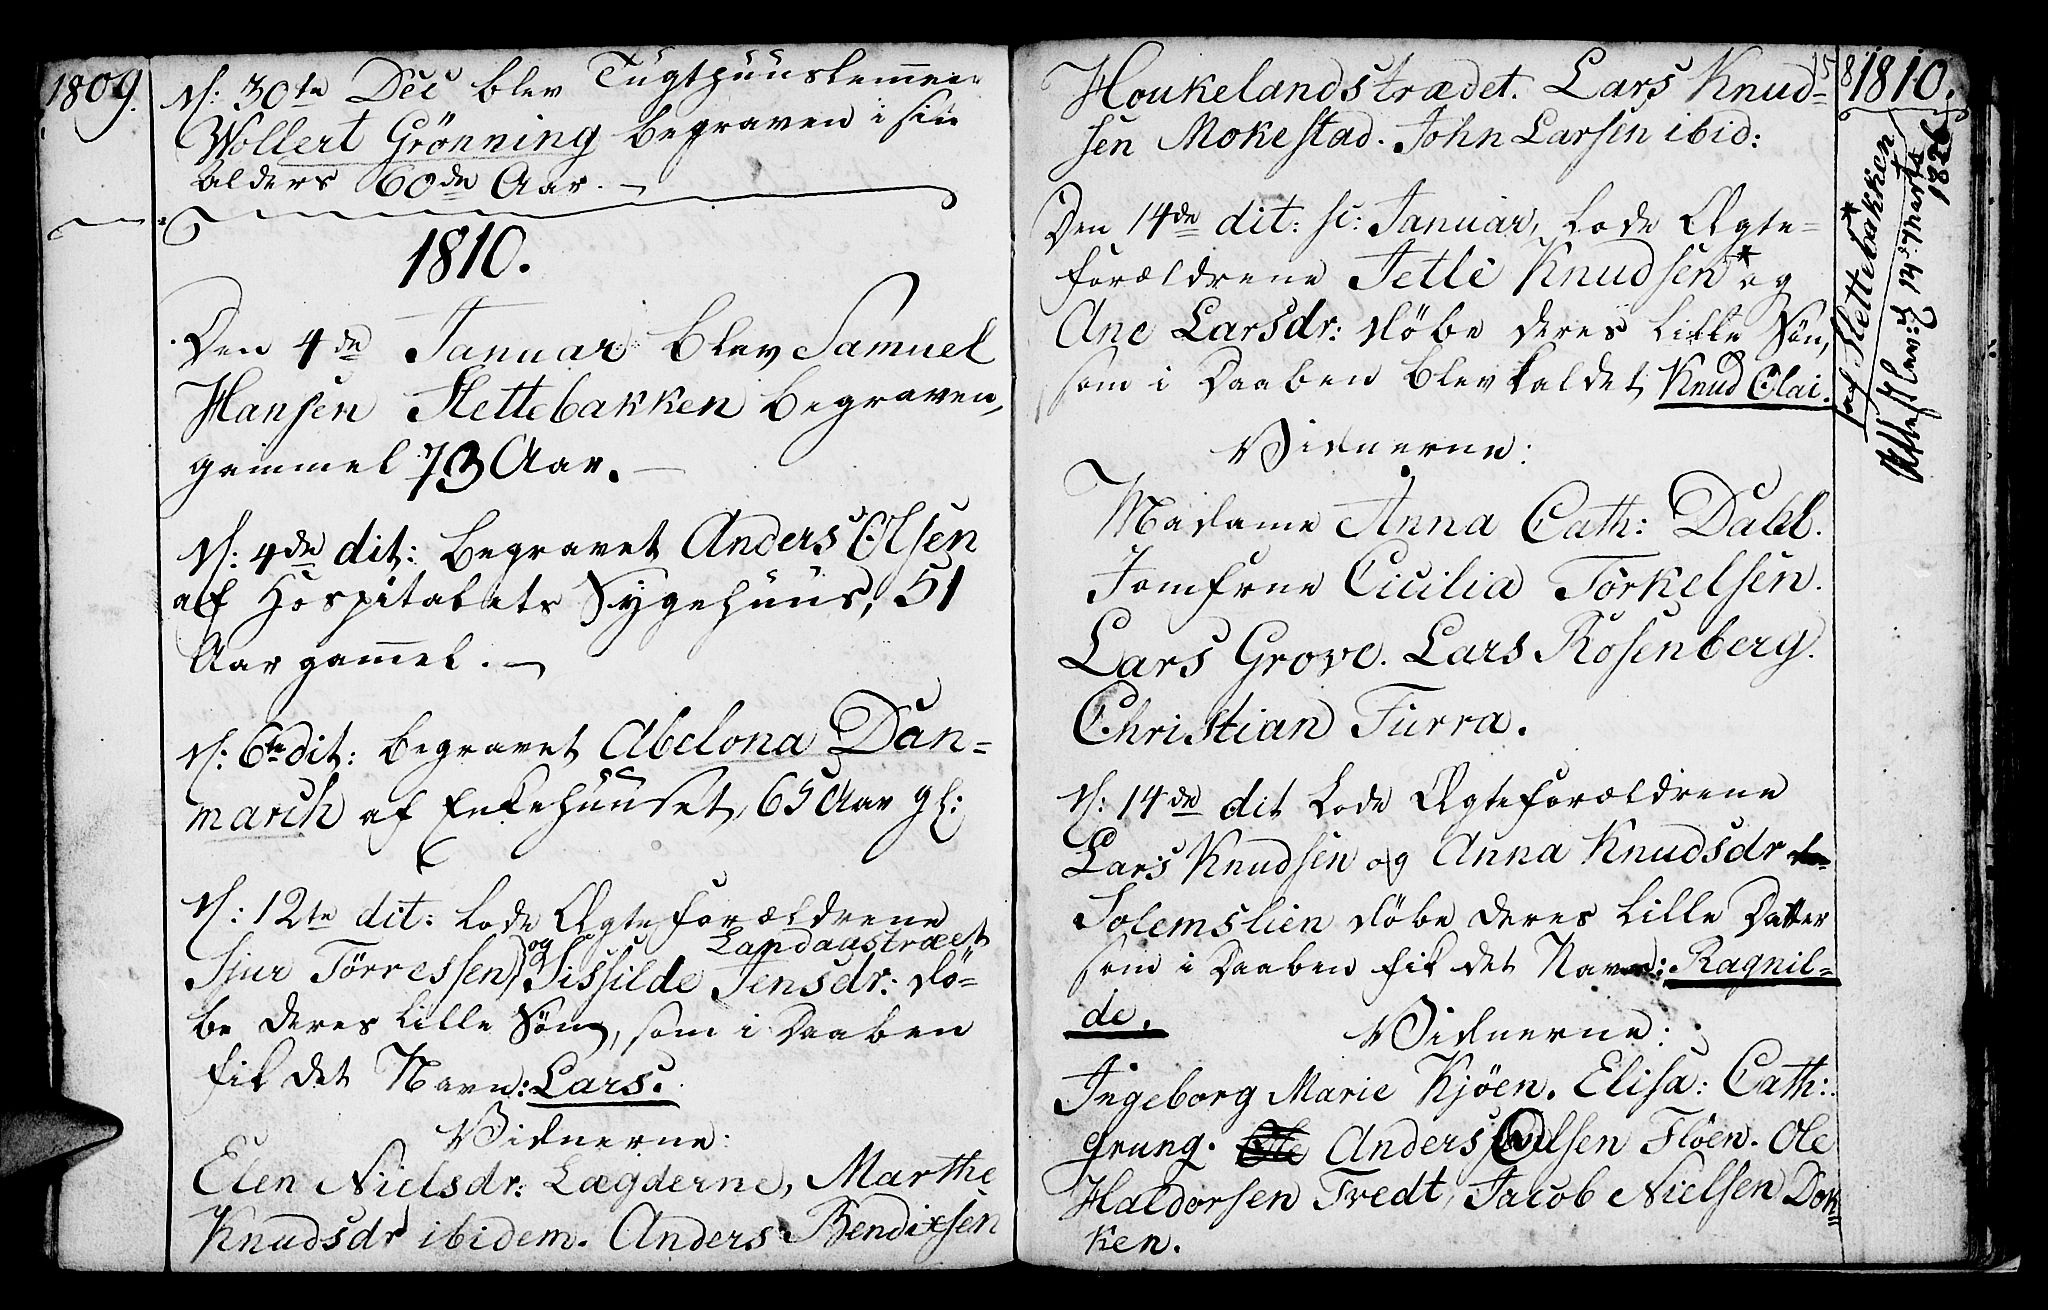 1809.
N: 30te Dec blev Tugthuuslemmen
Wollert Grönning begraven i sin
Alders 60de Aar.
1810.
Den 4de Januar blev Samuel
Hansen Slettebakken begraven,
gammel 73 Aar.
N: 4de dit: begravet Anders Olsen
af Hospitalets Sygehuus, 51
Aar gam̄el.
N: 6te dit: begravet Abelona Dan=
march af Enkehuuset, 65 Aar gl:
N: 12te dit: lode Ægteforældrene
Landaustræet
Sjur Törressen og Sissilde Jensdr: dö=
be deres lille Sön, som i Daaben
fik det Navn: Lars.
Vidnerne:
Elen Nielsdr: Lægderne, Marthe
Knudsdr ibidem. Anders Bendixsen
158
1810.
Houkelandstrædet. Lars Knud=
sen Mokestad. John Larsen ibid:
Den 14de dit: sc: Januar, lode Ægte=
forældrene Jetle Knudsen* og
Ane Larsdr: döbe deres lille Sön,
som i Daaben blev kaldet Knud Olai.
Vidnerne:
Madame Anna Cath: Dahl.
Jomfrue Cicilia Törkelsen.
Lars Grove. Lars Rosenberg.
Christian Furra.
N: 14de dit lode Ægteforældrene
Lars Knudsen og Anna Knudsdr
Solemslien döbe deres lille Datter
som i Daaben fik det Navn: Ragnil=
de.
Vidnerne:
Ingeborg Marie Kjöen. Elisa: Cath:
Grung. Ole Anders Paulsen Flöen. Ole
Haldorsen Tvedt, Jacob Nielsen Dok=
ken.
* af Slettebakken
14 Marts
1826